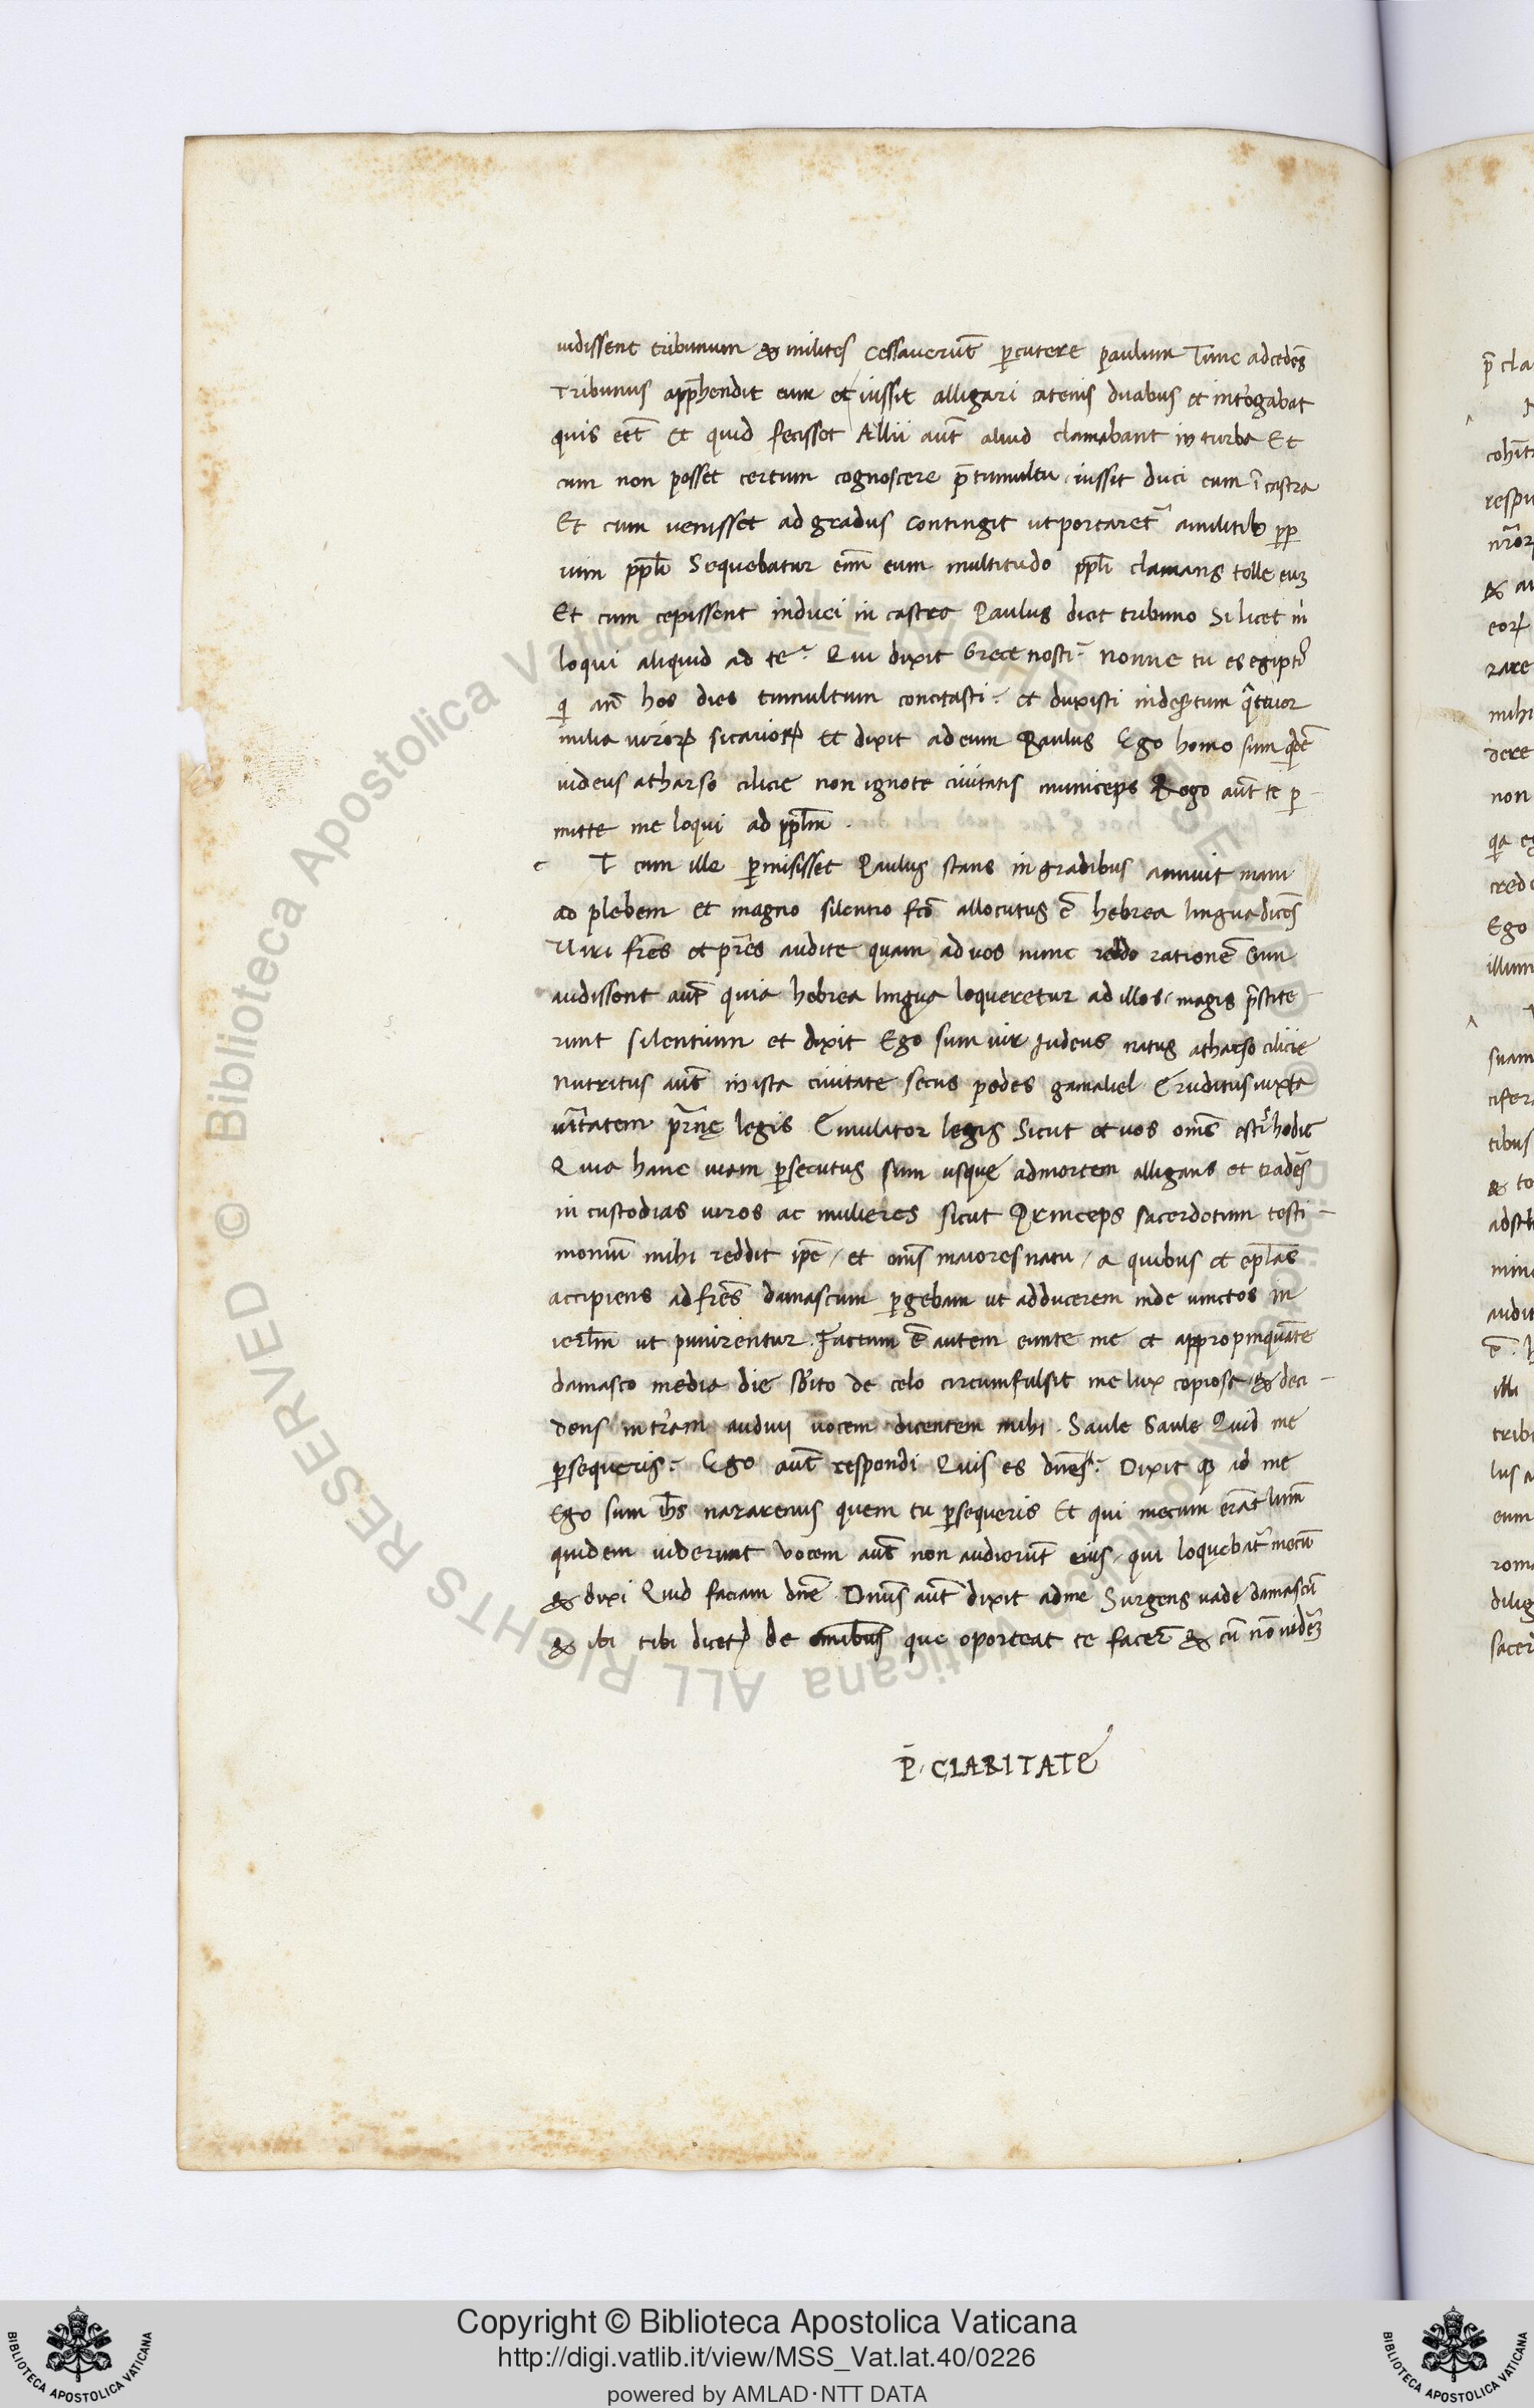 uidissent tribunum & milites cessauerūt ꝑcutere paulum Tunc adcedēs
Tribunus app̄hendit eum et iussit alligari catenis duabus et inter̓ogabat
quis eēt et quid fecisset Allii aūt aliud clamabant in turba Et
cum non posset certum cognoscere p̄ tumultu iussit duci eum ī castra
Et cum uenisset ad gradus contingit ut portaret᷑ a militib; ꝓp
uim ppl̄i Sequebatur eni̅m eum multitudo ppl̄i clamans tolle euꝫ
Et cum cepissent induci in castra Paulus dicit tribuno Si licet m̄
loqui aliquid ad te? Qui dixit Grece nosti? nonne tu es egiptꝰ
q̄ an̄ hos dies tumultum concitasti? et duxisti in desꝑtum q̄ttuor
milia uiroꝝ sicarioꝝ Et dixit ad eum Paulus Ego homo sum q̄dē
iudeus a tharso cilicie non ignote ciuitatis municeps Rogo aūt te ꝑ-
mitte me loqui ad ppl̄m.
e T cum ille ꝑmisisset Paulus stans in gradibus annuit manu
ad plebem et magno silentio fc̄o allocutus ē hebrea lingua dicēs
Uiri fr̄es et pr̄es audite quam ad uos nunc reddo rationē Cum
audissent aūt quia hebrea lingua loqueretur ad illos / magis p̄stite-
runt silentium et dixit Ego sum uir Iudeus natus a tharso cilicie
nutritus aūt in ista ciuitate secus pedes gamaliel Eruditus iuxta
uītatem pr̄nę legis Emulator legis Sicut et uos om̄s estis̓ hodie
Quia hanc uiam ꝑsecutus sum usque ad mortem alligans et tradēs
in custodias uiros ac mulieres sicut Princeps sacerdotum testi-
monium mihi reddit ip̄e / et om̄s maiores natu / a quibus et epl̄as
accipiens ad fr̄es damascum ꝑgebam ut adducerem inde uinctos in
ierl̄m ut punirentur. Factum ē autem eunte me et appropinquāte
damasco media die sbito de celo circumfulsit me lux copiosa & deci-
dens in tr̄am audiui uocem dicentem mihi. Saule Saule Quid me
ꝑsequeris? Ego aūt respondi Quis es dn̄e? Dixit qꝫ ad me
Ego sum ih̄s nazarenus quem tu ꝑsequeris Et qui mecum erāt lum̄
quidem uiderunt Vocem aūt non audierūt eius / qui loquebat᷑ mecū
& dixi Quid faciam dn̄e Dn̄s aūt dixit ad me Surgens uade damascū
& ibi tibi dicet᷑ de omībus que oporteat te facer̄ & cū nō uiderē
P̄. CLARITATE